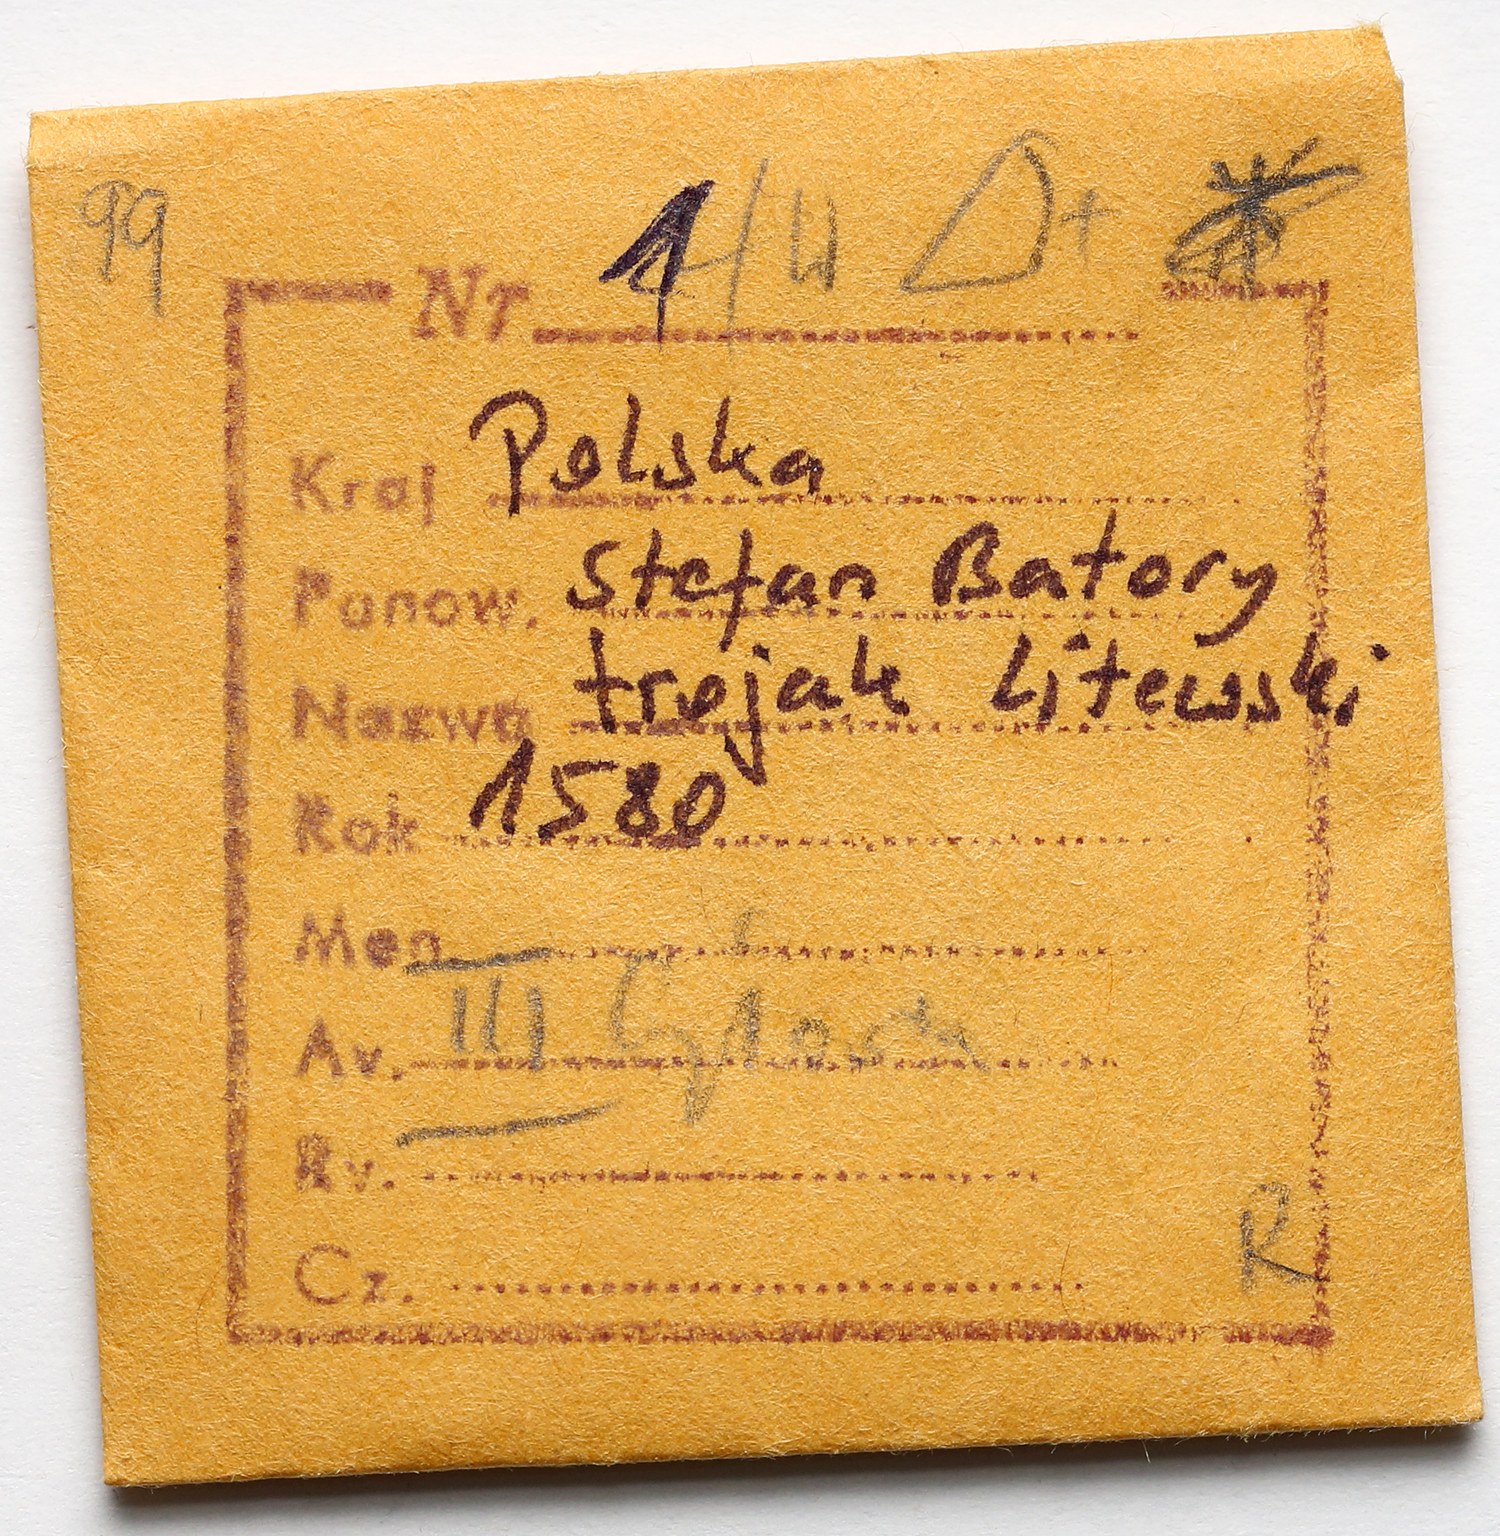 99
Nr 1
Kraj Polska
Panow. Stefan Batory
Nazwa trojak litewski
Rok 1580
Men
Av. III
Rv.
Cz.
R